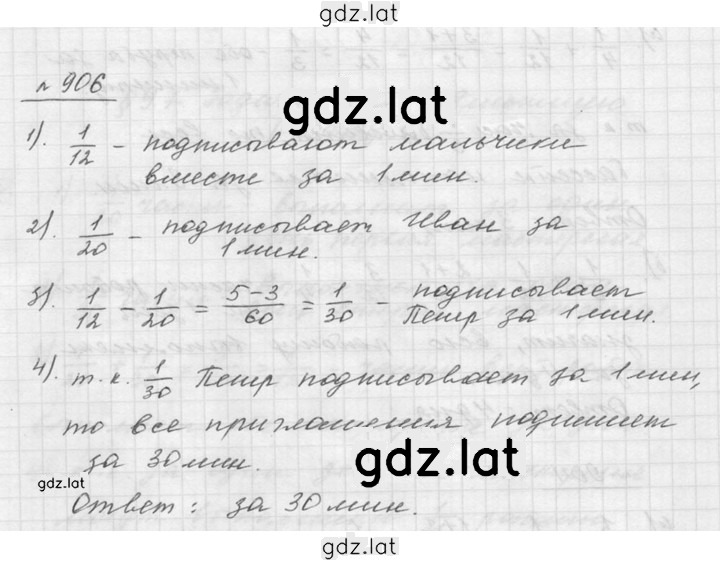 gdz.lat
№ 906
gdz.lat
1). 1/12 - подписывают мальчики
вместе за 1 мин.
2). 1/20 - подписывает Иван за
1 мин.
3). 1/12 - 1/20 = 5-3/60 = 1/30 - подписывает
Петр за 1 мин.
4). т.к. 1/30 Петр подписывает за 1 мин,
то все приглашения подпишет
за 30 мин.
gdz.lat
gdz.lat
Ответ: за 30 мин.
gdz.lat